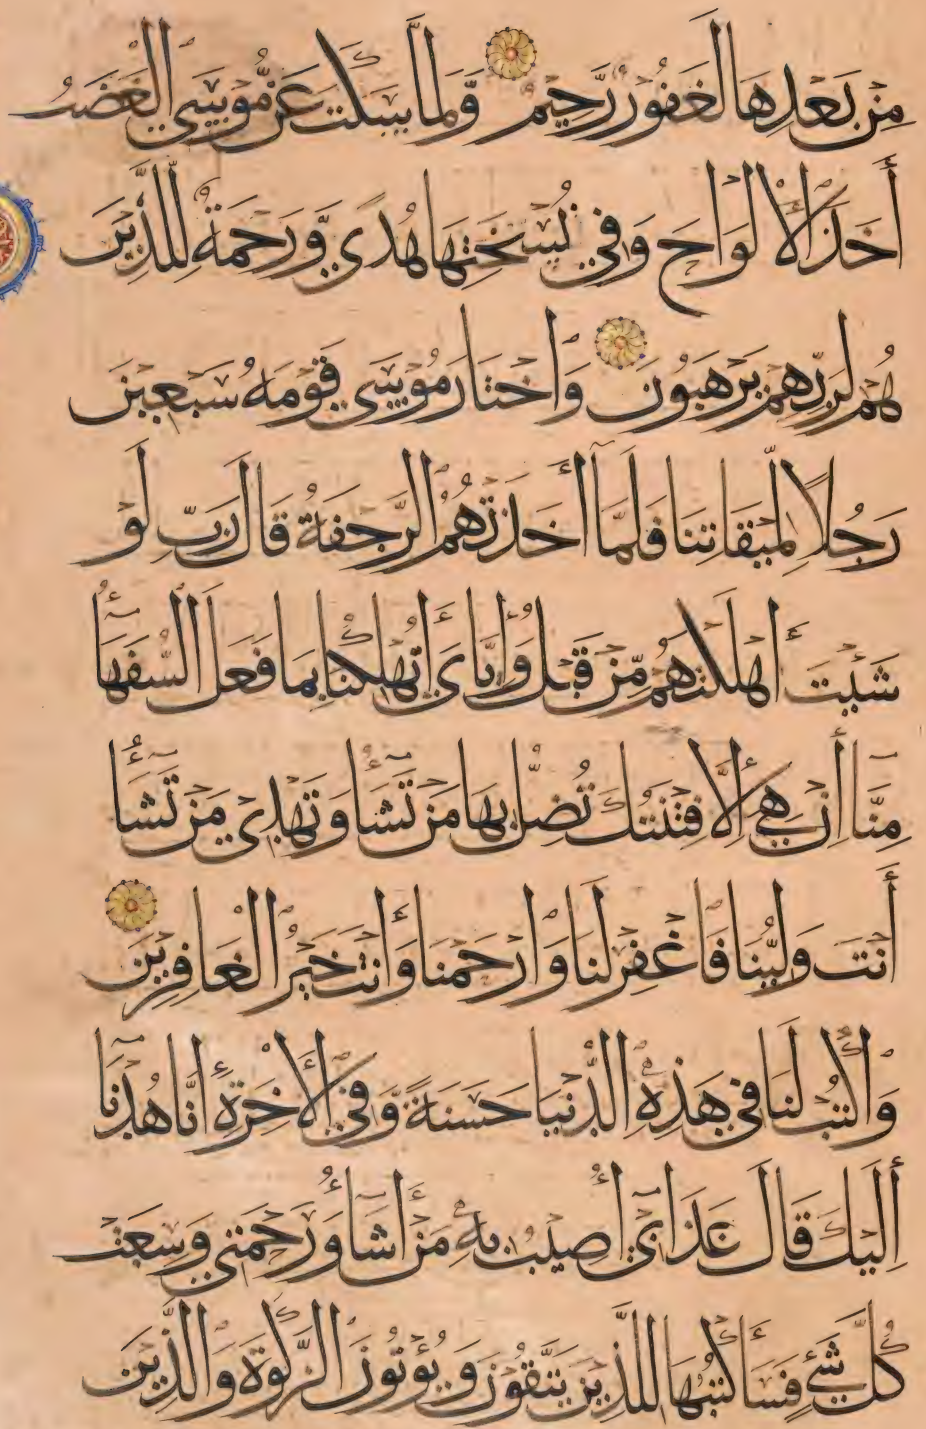 مِنْ بَعْدِهَا لَغَفُورٌ رَّحِيمٌ وَلَمَّا سَكَتَ عَنْ مُّوسَى الْغَضَبُ
أَخَذَ الْأَلْوَاحَ وَفِي نُسْخَتِهَا هُدًى وَّرَحْمَةٌ لِلَّذِينَ
هُمْ لِرَبِّهِمْ يَرْهَبُونَ وَاخْتَارَ مُوسَى قَوْمَهُ سَبْعِينَ
رَجُلًا لِمِيقَاتِنَا فَلَمَّا أَخَذَتْهُمُ الرَّجْفَةُ قَالَ رَبِّ لَوْ
شِئْتَ أَهْلَكْتَهُمْ مِّنْ قَبْلُ وَإِيَّايَ أَتُهْلِكُنَا بِمَا فَعَلَ السُّفَهَآءُ
مِنَّا إِنْ هِيَ إِلَّا فِتْنَتُكَ تُضِلُّ بِهَا مَنْ تَشَآءُ وَتَهْدِي مَنْ تَشَآءُ
أَنْتَ وَلِيُّنَا فَاغْفِرْ لَنَا وَارْحَمْنَا وَأَنْتَ خَيْرُ الْغَافِرِينَ
وَاكْتُبْ لَنَا فِي هَذِهِ الدُّنْيَا حَسَنَةً وَّفِي الْأَخِرَةِ إِنَّا هُدْنَا
إِلَيْكَ قَالَ عَذَابِي أُصِيبُ بِهِ مَنْ أَشَآءُ وَرَحْمَتِي وَسِعَتْ
كُلَّ شَيْءٍ فَسَأَكْتُبُهَا لِلَّذِينَ يَتَّقُونَ وَيُؤْتُونَ الزَّكَوةَ وَالَّذِينَ